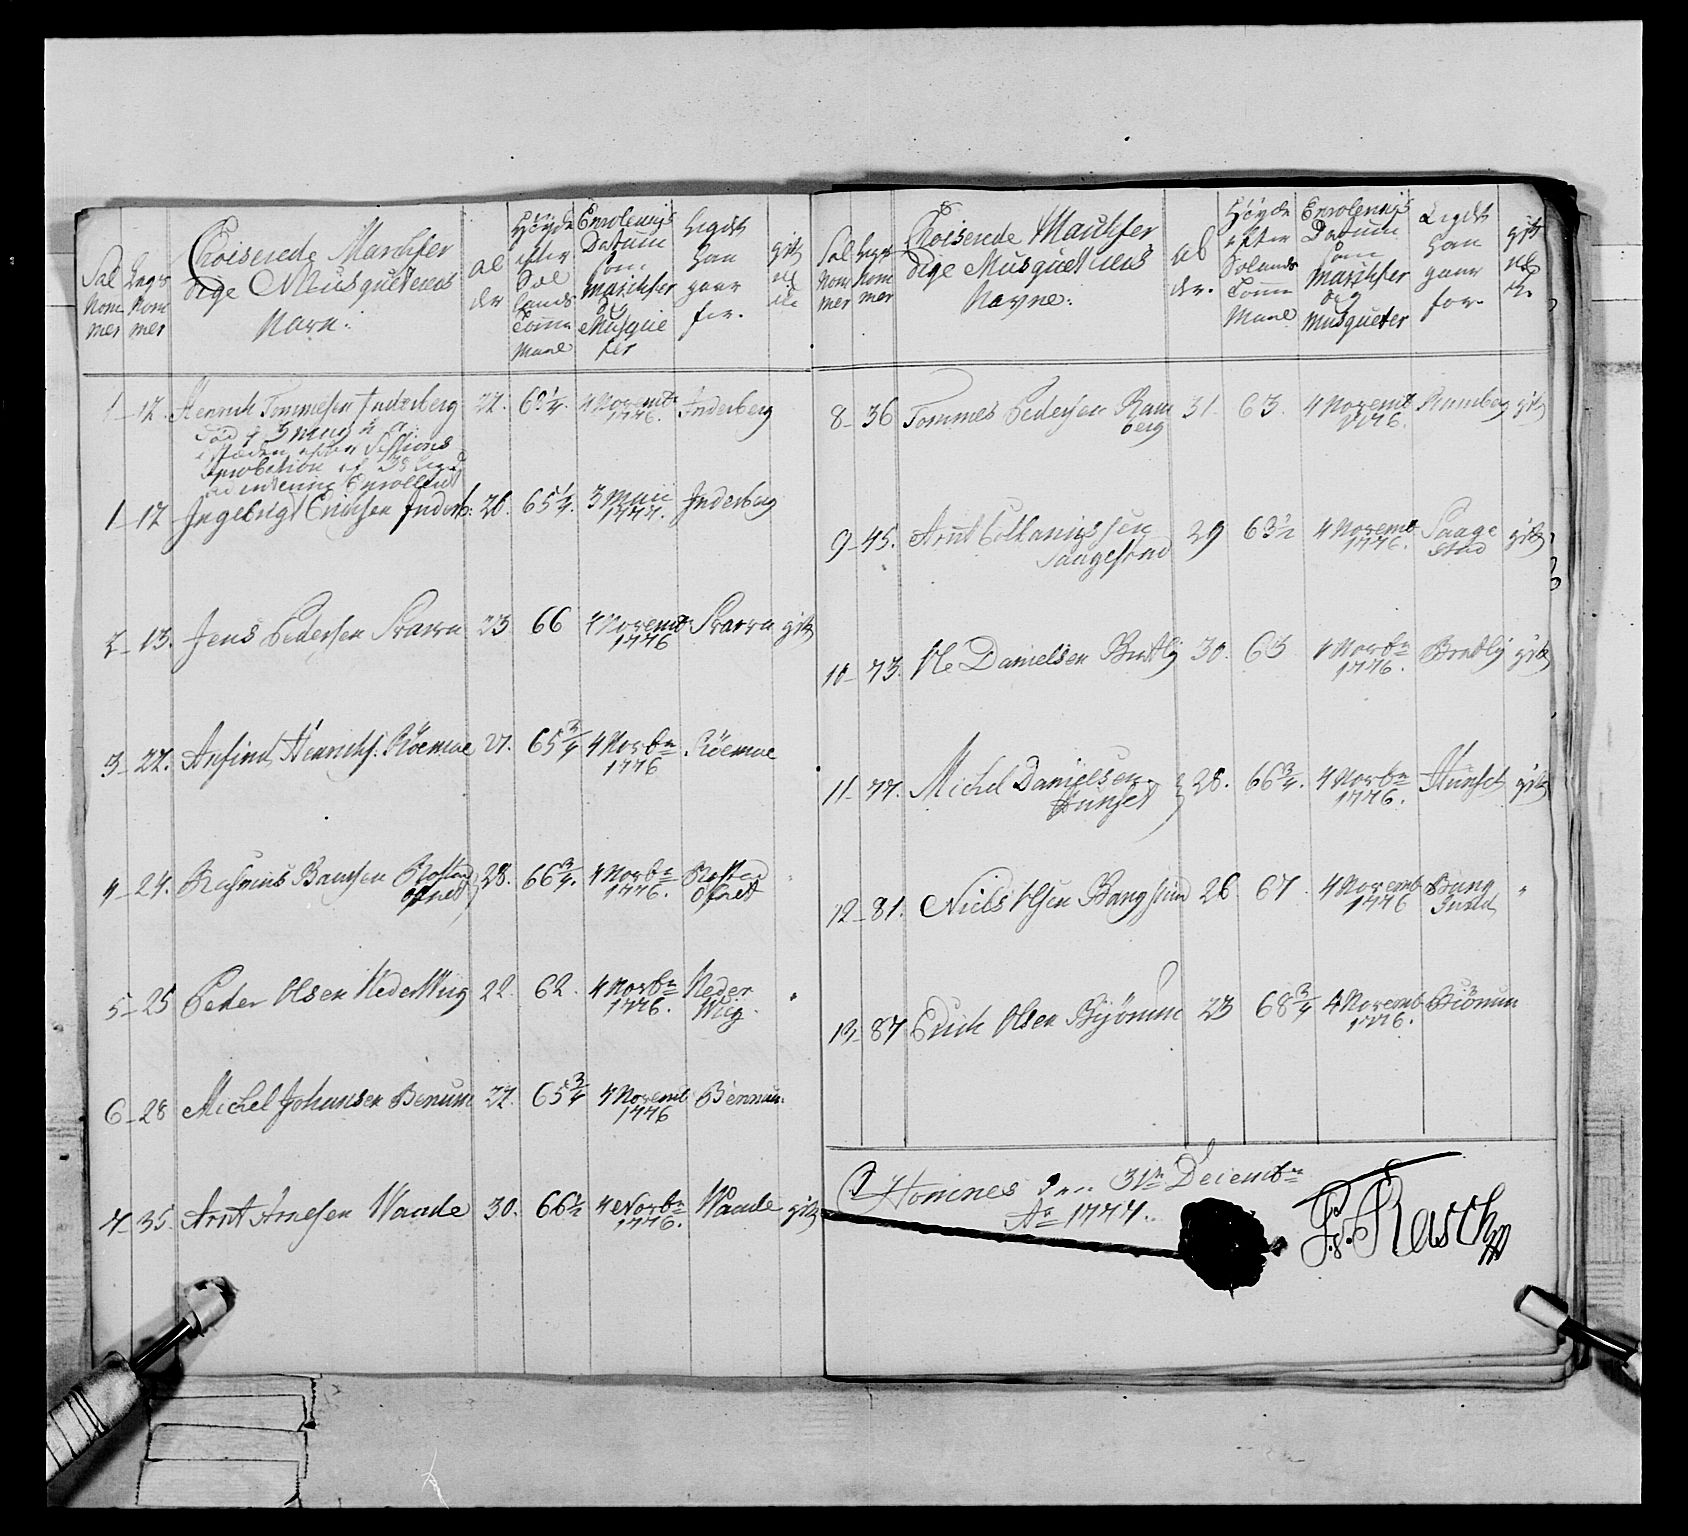 Sal Nom mer
Lægs Nom mer
Choiserede Marchfer
dige Musqueteurs
Navn:
al
der
Høyde
efter
Sol
lands
Comu
Maal
Enrolerings
Datum
som
marchfer
dig
Musque
ter
Legdt
han
gaar
for.
gift
ell
ei
1 - 12. Henrich Tommesen Inderberg 22. 62 1/4. 4 Novembr 1776. Inderberg
Død
3 Maji
Sessions
Enrollert
1 - 12 Ingebrigt Erichsen Inderb: 20. 65 1/4. 3 Maii 1777. Inderberg
2 - 13. Jens Pedersen Svarva 23 66 4 Novembr 1776 Svarva gift
3 - 22. Arfind Henrichs. Röemoe 27. 65 3/4 4 Novbr 1776 Röemoe
4 - 24. Rasmus Bansen Rostad
Øfnet 28. 66 3/4. 4 Novbr 1776. Rostad
Øfnet
5 - 25 Peder Olsen Neder Wiig 22. 62. 4 Novbr 1776. Neder
Wiig.
6 - 28 Michel Johansen Benum 22. 65 3/4 4 Novembr 1776 Bennum.
7 - 35. Arnt Arnesen Waade 30. 66 1/2 4 Novbr 1776. Waade gift
Sal Nom mer
Lægs Nom mer
Choiserede Marchfer
dige Musqueteurs
Navne:
al
der.
Høyde
efter
Solands
Comu
Maal
Enrolerings
Datum
som
Marchfer
dig
Musqueter
Legdt
han
gaar
for.
gift
ell
ei
8 - 36 Tommes Pedersen Ram
berg 31. 63. 4 Novembr 1776. Ramberg gift
9 - 45. Arnt Ellanigssen
Saagestad 29 63 1/2 4 Novembr 1776. Saage
stad gift
10 - 73. Ole Danielsen Bratlj 30. 63 4 Novbr 1776. Bratlj gift
11 - 77. Michel Danielsen
Hunset 28. 66 3/4. 4 Novbr 1776. Hunset gift
12 - 81. Niels Olsen Bangsund 26. 67. 4 Novembr 1776 Bang
sund
13 - 87 Erich Olsen Biörum 23 68 3/4 4 Novembr 1776. Biörum
Homnes den 31te Decembr
Ao 1777.
F. v. Rasch